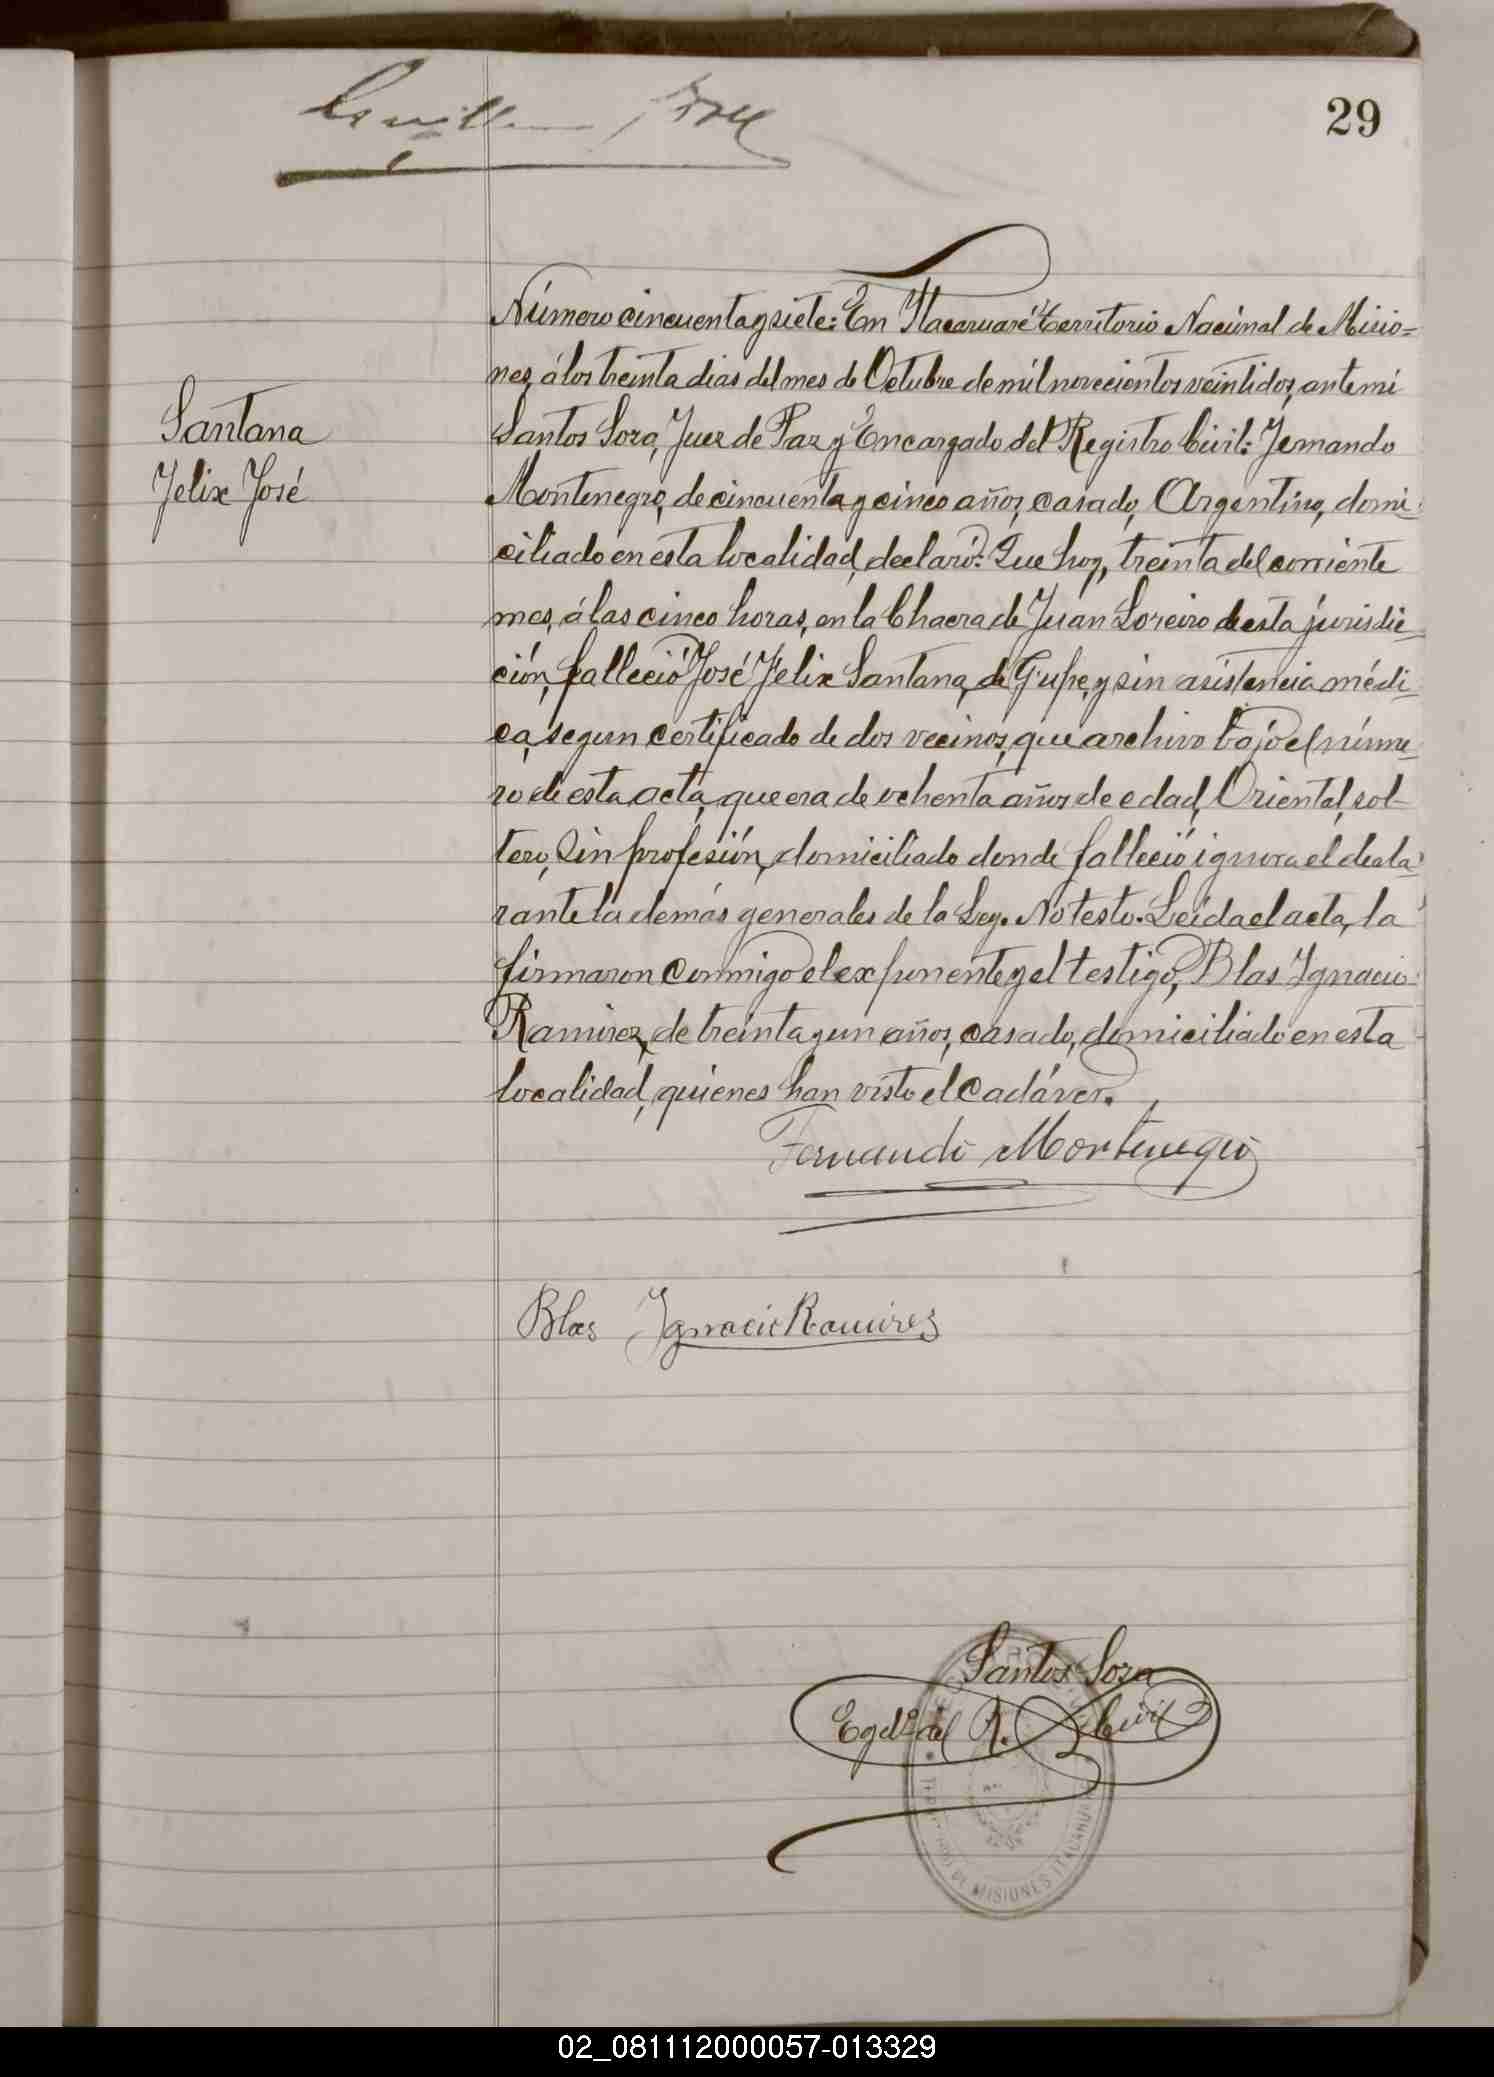 29
Número cincuenta y siete: En Itacaruaré Territorio Nacional de Misio=
nes, á los treinta dias del mes de Octubre de mil novecientos veintidos, ante mi
Santos Sosa, Juez de Paz y Encargado del Registro Civil: Fernando
Montenegro, de cincuenta y cinco años, casado, Argentino, domi-
ciliado en esta localidad, declaró: Que hoy, treinta del corriente
mes, á las cinco horas, en la Chacra de Juan Loreiro de esta jurisdic-
ción, falleció José Felix Santana, de Gripe, y sin asistencia médi-
ca, segun certificado de dos vecinos, que archivo bajo el núme-
ro de esta acta, que era de ochenta años de edad, Oriental, sol-
tero, Sin profesión, domiciliado donde falleció ignora el decla-
rante la demás generales de la Ley. No testo. Leida el acta, la
firmaron conmigo el exponente y el testigo, Blas Ygnacio
Ramirez, de treinta y un años, casado, domiciliado en esta
localidad, quienes han visto el cadáver.
Santana
Felix José
Fernando Montenegro
Blas Ygnacio Ramirez
Santos Sosa
Egdo. del R. Civil
DE MISIONES ITACARUARE
02_081112000057-013329